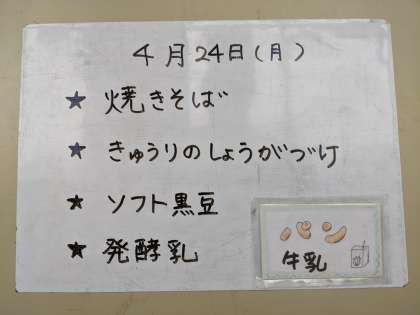 4月24日(月)
★ 焼きそば
★ きゅうりのしょうがづけ
★ ソフト黒豆
★ 発酵乳
パン
牛乳